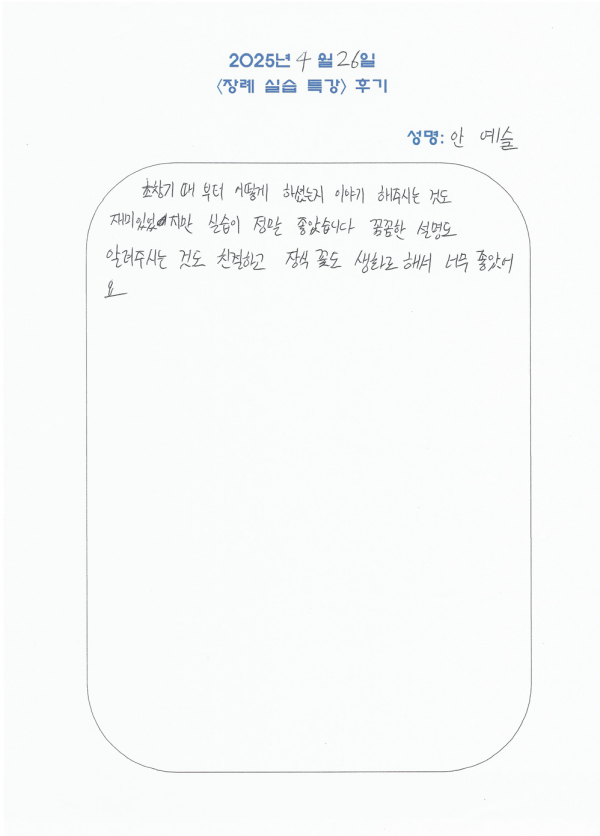 2025년 4월 26일
<장례 실습 특강> 후기
성명: 안 예슬
초창기 때 부터 어떻게 하셨는지 이야기 해주시는 것도
재미있었지만 실습이 정말 좋았습니다 꼼꼼한 설명도
알려주시는 것도 친절하고 장식 꽃도 생화로 해서 너무 좋았어
요